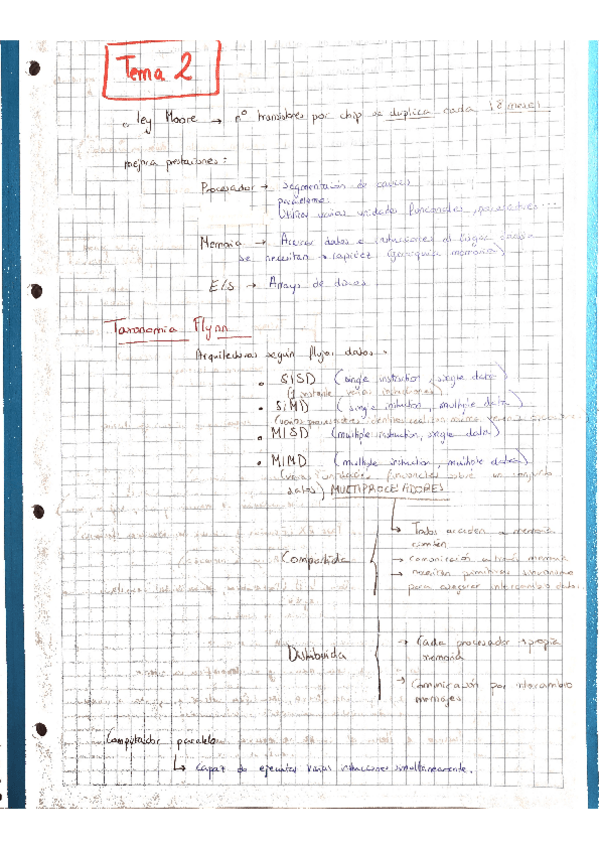 Tema 2
Ley Moore → nº transistores por chip se duplica cada 18 meses
mejora prestaciones:
Procesador → segmentación de cauces
paralelismo
Utilizar varias unidades funcionales,
Memoria → Acercar datos e instrucciones al lugar donde
se necesitan → rapidez (jerarquía memoria)
E/S → Arrays de discos
Taxonomia Flynn
Arquitecturas según flujos datos.
• SISD (single instruction, single data)
(1 instante
• SIMD (single instruction, multiple data)
(varios procesadores
• MISD (multiple instruction, single data)
• MIMD (multiple instruction, multiple data)
(varias unidades funcionales sobre un conjunto
datos) MULTIPROCESADORES
Compartida
→ Todos acceden a memoria
común
→ comunicación a través memoria
→ necesitan primitivas
para asegurar intercambio datos.
Distribuida
→ Cada procesador → propia
memoria
→ Comunicación por intercambio
mensajes
Computador paralelo
↳ capaz de ejecutar varias instrucciones simultaneamente.